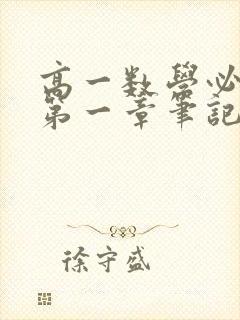 高一数学必
第一章筆記
徐守盛